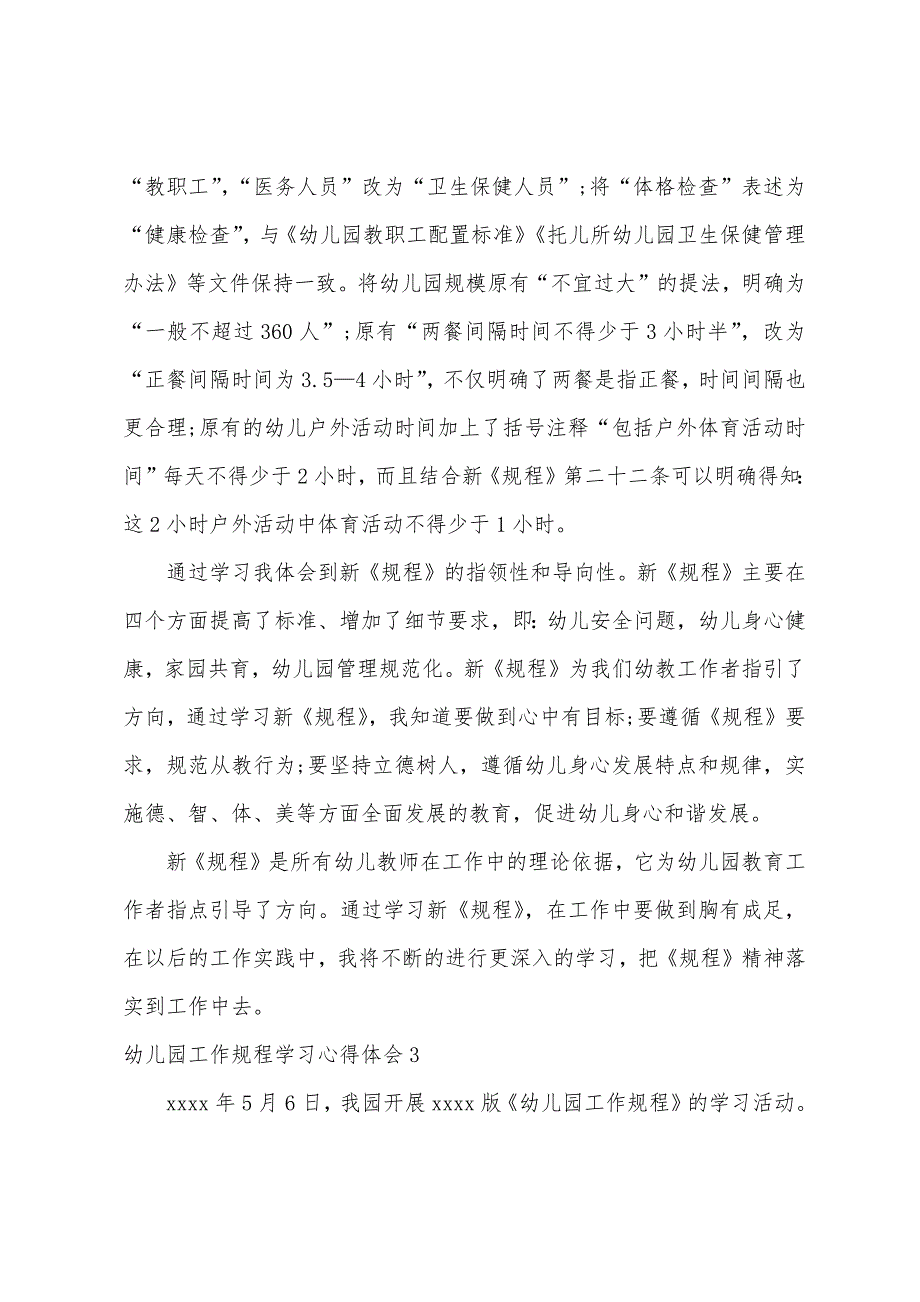 “教职工”，“医务人员”改为“卫生保健人员”;将“体格检查”表述为
“健康检查”，与《幼儿园教职工配置标准》《托儿所幼儿园卫生保健管理
办法》等文件保持一致。将幼儿园规模原有“不宜过大”的提法，明确为
“一般不超过 360 人”;原有“两餐间隔时间不得少于 3 小时半”，改为
“正餐间隔时间为 3.5—4 小时”，不仅明确了两餐是指正餐，时间间隔也
更合理;原有的幼儿户外活动时间加上了括号注释“包括户外体育活动时
间”每天不得少于 2 小时，而且结合新《规程》第二十二条可以明确得知：
这 2 小时户外活动中体育活动不得少于 1 小时。
通过学习我体会到新《规程》的指领性和导向性。新《规程》主要在
四个方面提高了标准、增加了细节要求，即：幼儿安全问题，幼儿身心健
康，家园共育，幼儿园管理规范化。新《规程》为我们幼教工作者指引了
方向，通过学习新《规程》，我知道要做到心中有目标;要遵循《规程》要
求，规范从教行为;要坚持立德树人，遵循幼儿身心发展特点和规律，实
施德、智、体、美等方面全面发展的教育，促进幼儿身心和谐发展。
新《规程》是所有幼儿教师在工作中的理论依据，它为幼儿园教育工
作者指点引导了方向。通过学习新《规程》，在工作中要做到胸有成足，
在以后的工作实践中，我将不断的进行更深入的学习，把《规程》精神落
实到工作中去。
幼儿园工作规程学习心得体会 3
xxxx 年 5 月 6 日，我园开展 xxxx 版《幼儿园工作规程》的学习活动。